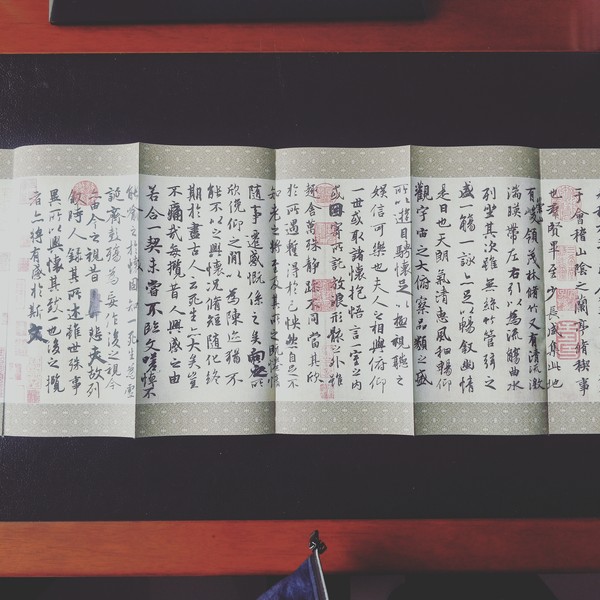 于會稽山陰之蘭亭脩稧事
也羣賢畢至少長咸集此地
有崇領茂林脩竹又有清流激
湍暎帶左右引以為流觴曲水
列坐其次雖無絲竹管弦之
盛一觴一詠亦足以暢敘幽情
是日也天朗氣清惠風和暢仰
觀宇宙之大俯察品類之盛
所以遊目騁懷足以極視聽之
娛信可樂也夫人之相與俯仰
一世或取諸懷抱悟言一室之內
或因寄所託放浪形骸之外雖
趣舍萬殊靜躁不同當其欣
於所遇蹔得於己怏然自足不
知老之將至及其所之既惓情
隨事遷感慨係之矣向之所
欣俛仰之閒以為陳迹猶不
能不以之興懷況脩短隨化終
期於盡古人云死生亦大矣豈
不痛哉每攬昔人興感之由
若合一契未嘗不臨文嗟悼不
能喻之於懷固知一死生為虛
誕齊彭殤為妄作後之視今
亦由今之視昔悲夫故列
敘時人錄其所述雖世殊事
異所以興懷其致一也後之攬
者亦將有感於斯文